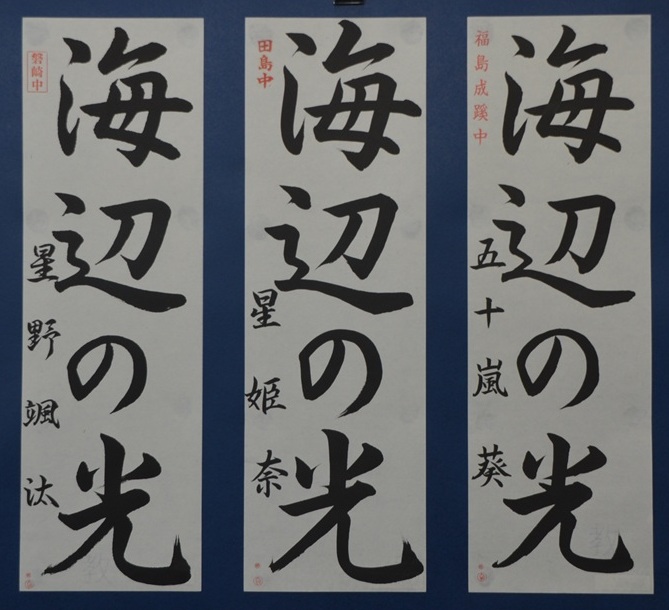 海辺の光
福島成蹊中
五十嵐葵
海辺の光
田島中
星姫奈
海辺の光
磐崎中
星野颯汰